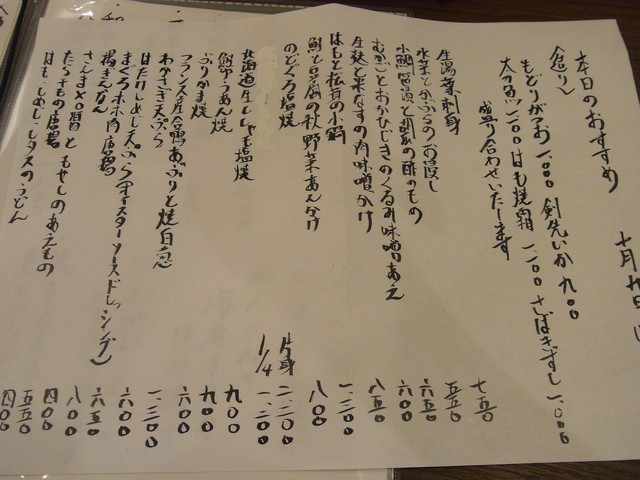 十月九日
本日のおすすめ
(造り)
もどりがつお 一、〇〇〇 剣先いか 九〇〇
太刀魚 一、一〇〇 はも焼霜 一、一〇〇 さばきずし 一、〇〇〇
盛り合わせいたします
生湯葉刺身 七五〇
水菜とかぶらのお浸し 五五〇
六五〇
むかごとおかひじきのくるみ味噌あえ 六〇〇
生麸と米なすの肉味噌がけ 八五〇
はもと松茸の小鍋 一、二〇〇
鯛と豆腐の秋野菜あんかけ 八〇〇
のどぐろ塩焼 片身 二、二〇〇
1/4 一、二〇〇
北海道生ししゃも塩焼 九〇〇
九〇〇
ぶりかま焼 六〇〇
フランス産合鴨あぶりと焼白葱 一、二〇〇
わかさぎ天ぷら 六〇〇
はたけしめじ天ぷら(オイスターソースドレッシング) 六五〇
まぐろホホ肉唐揚 八〇〇
揚ぎんなん 四〇〇
さんまXO醤ともやしのあえもの 五五〇
たら子もの唐揚 四〇〇
はも・しめじ・レタスのうどん